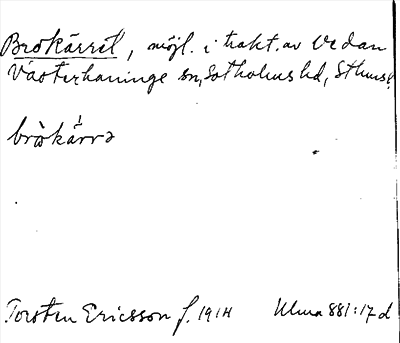 Brokärret, möjl. i trakt. av Vedan
Västerhaninge sn, Sotholms hd, Sthms l.
bròkä̀rrə
Torsten Ericsson f. 1914 Ulma 881:17 d